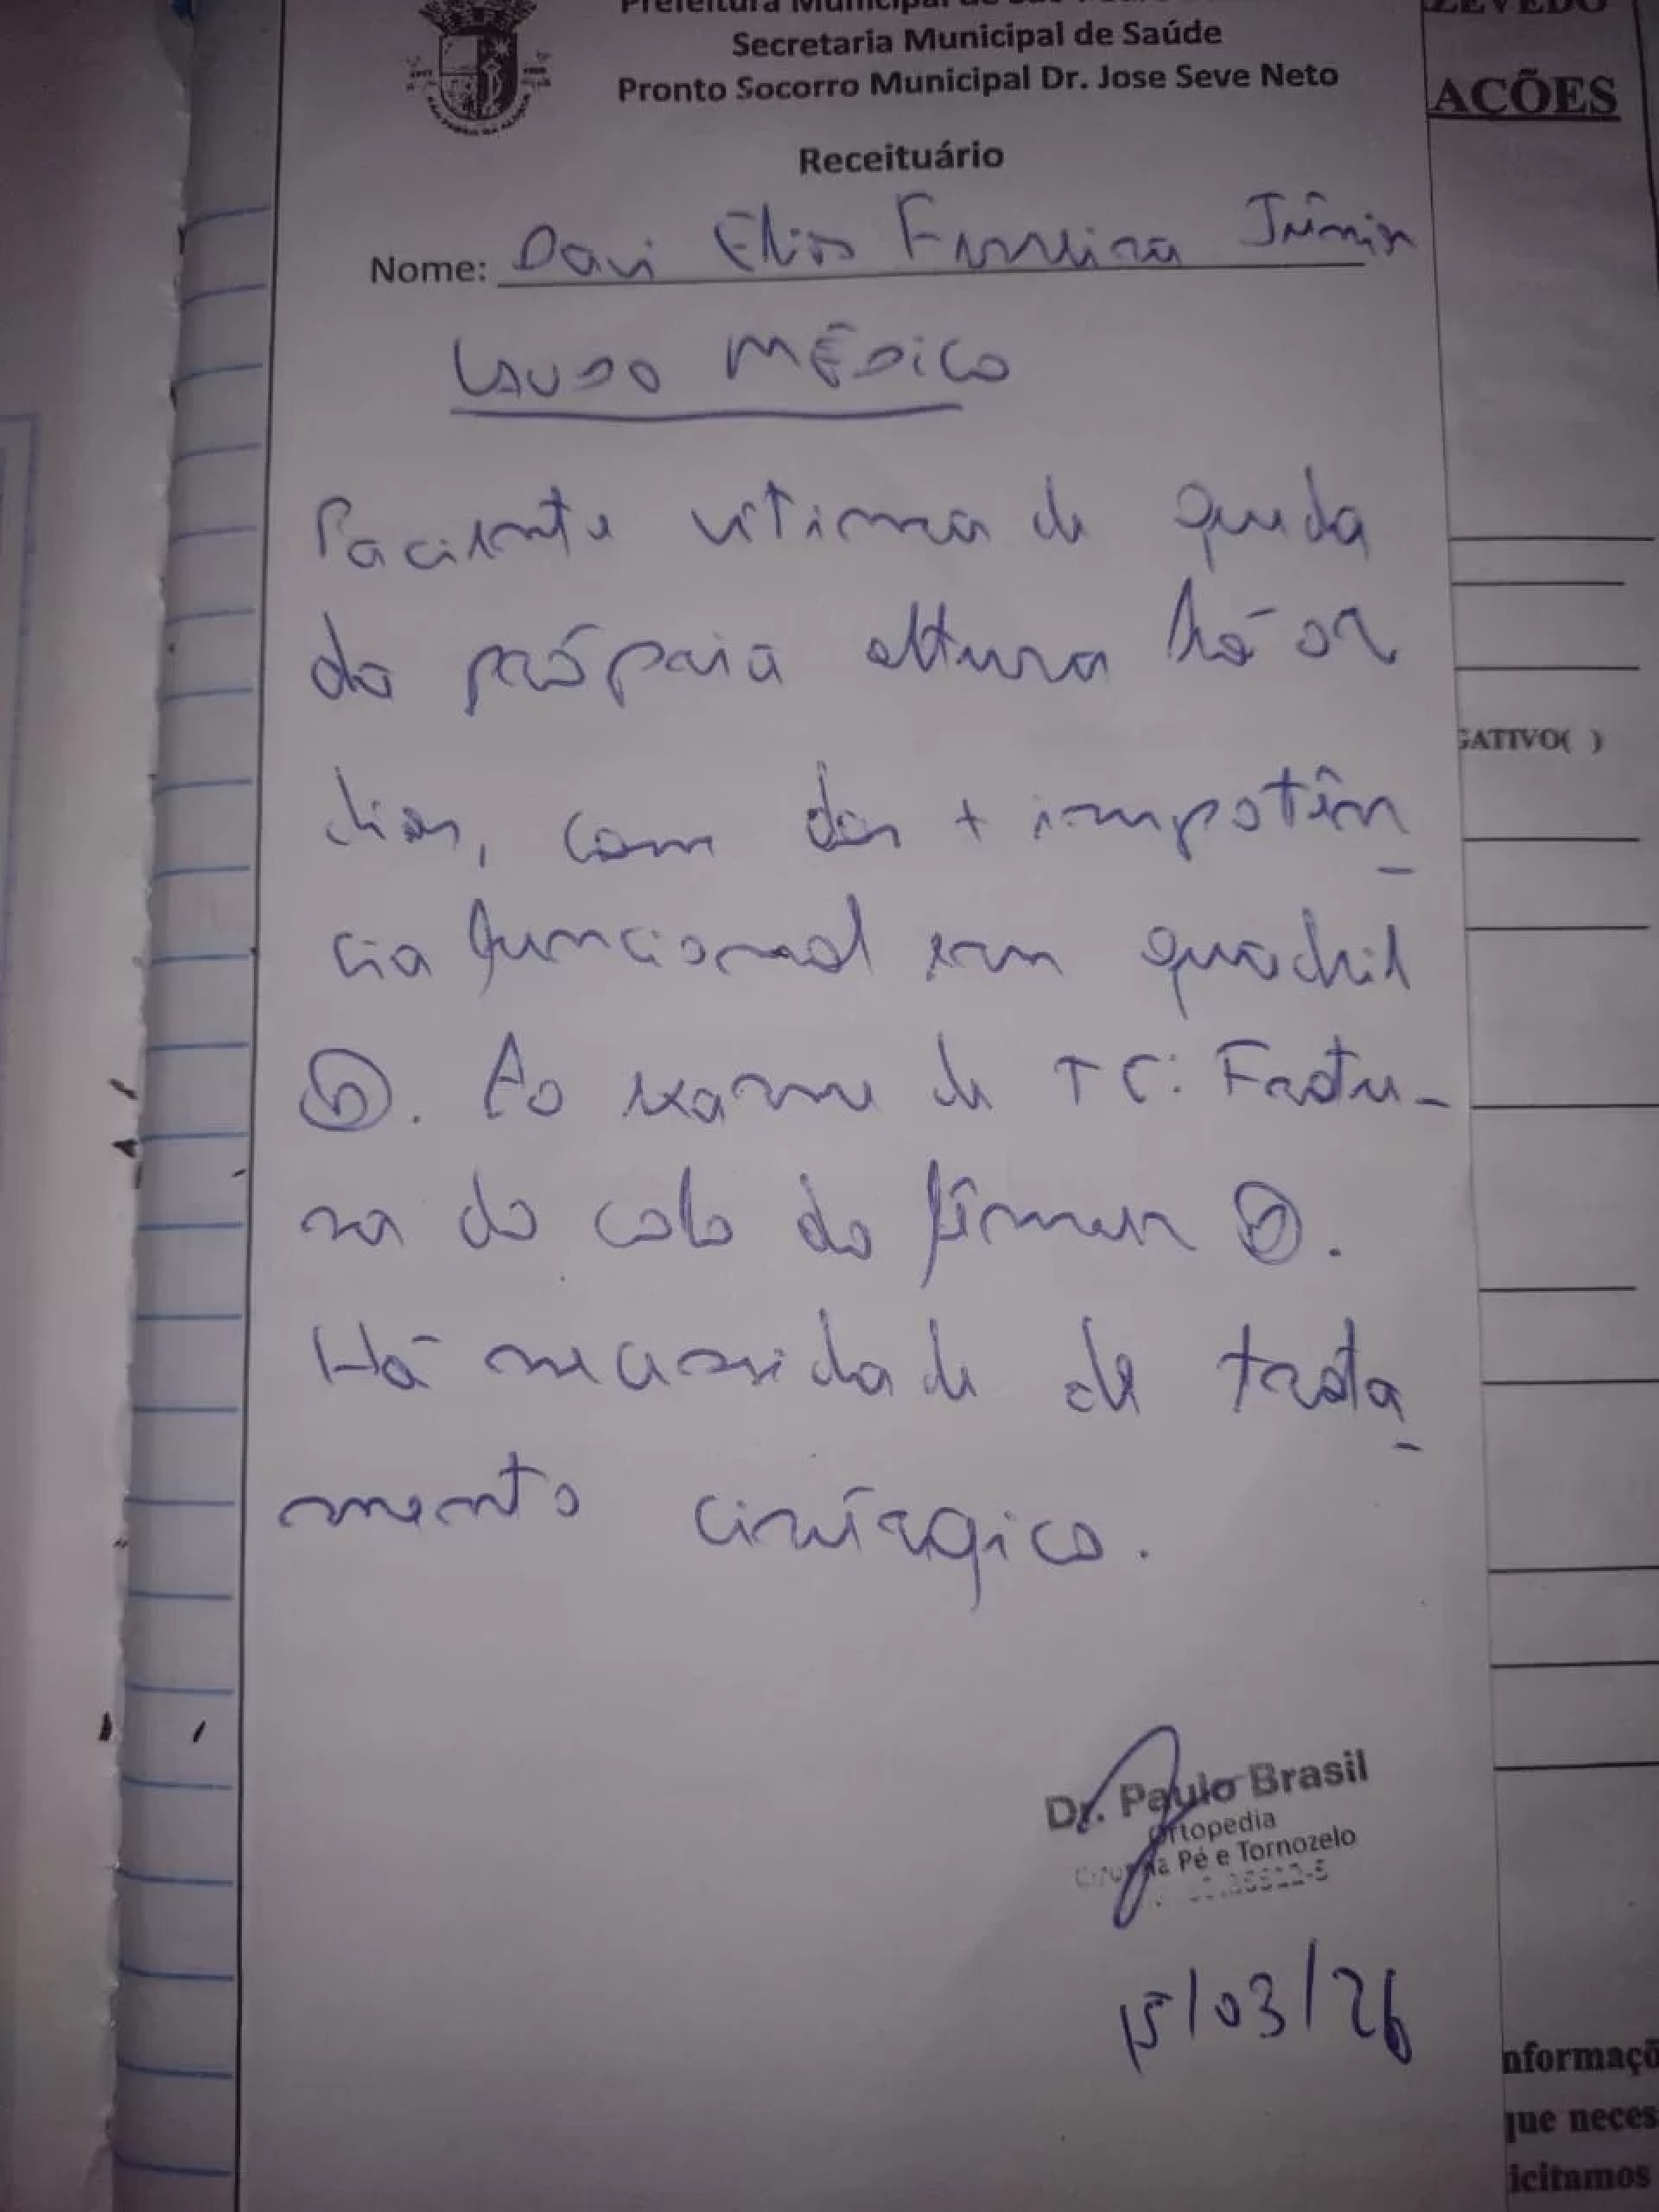 Prefeitura Municipal de São Pedro
Secretaria Municipal de Saúde
Pronto Socorro Municipal Dr. Jose Seve Neto
Receituário
Nome: Davi Elias Ferreira Júnior
LAUDO MÉDICO
Paciente vítima de queda
da própria altura há 02
dias, com dor + impotên-
cia funcional em quadril
D. Ao exame de TC: Fratu-
ra do colo do fêmur D.
Há necessidade de trata-
mento cirúrgico.
Dr. Paulo Brasil
Ortopedia
Pé e Tornozelo
15/03/26
ZEVEDO
AÇÕES
GATIVO( )
nformaçõ
que neces
icitamos